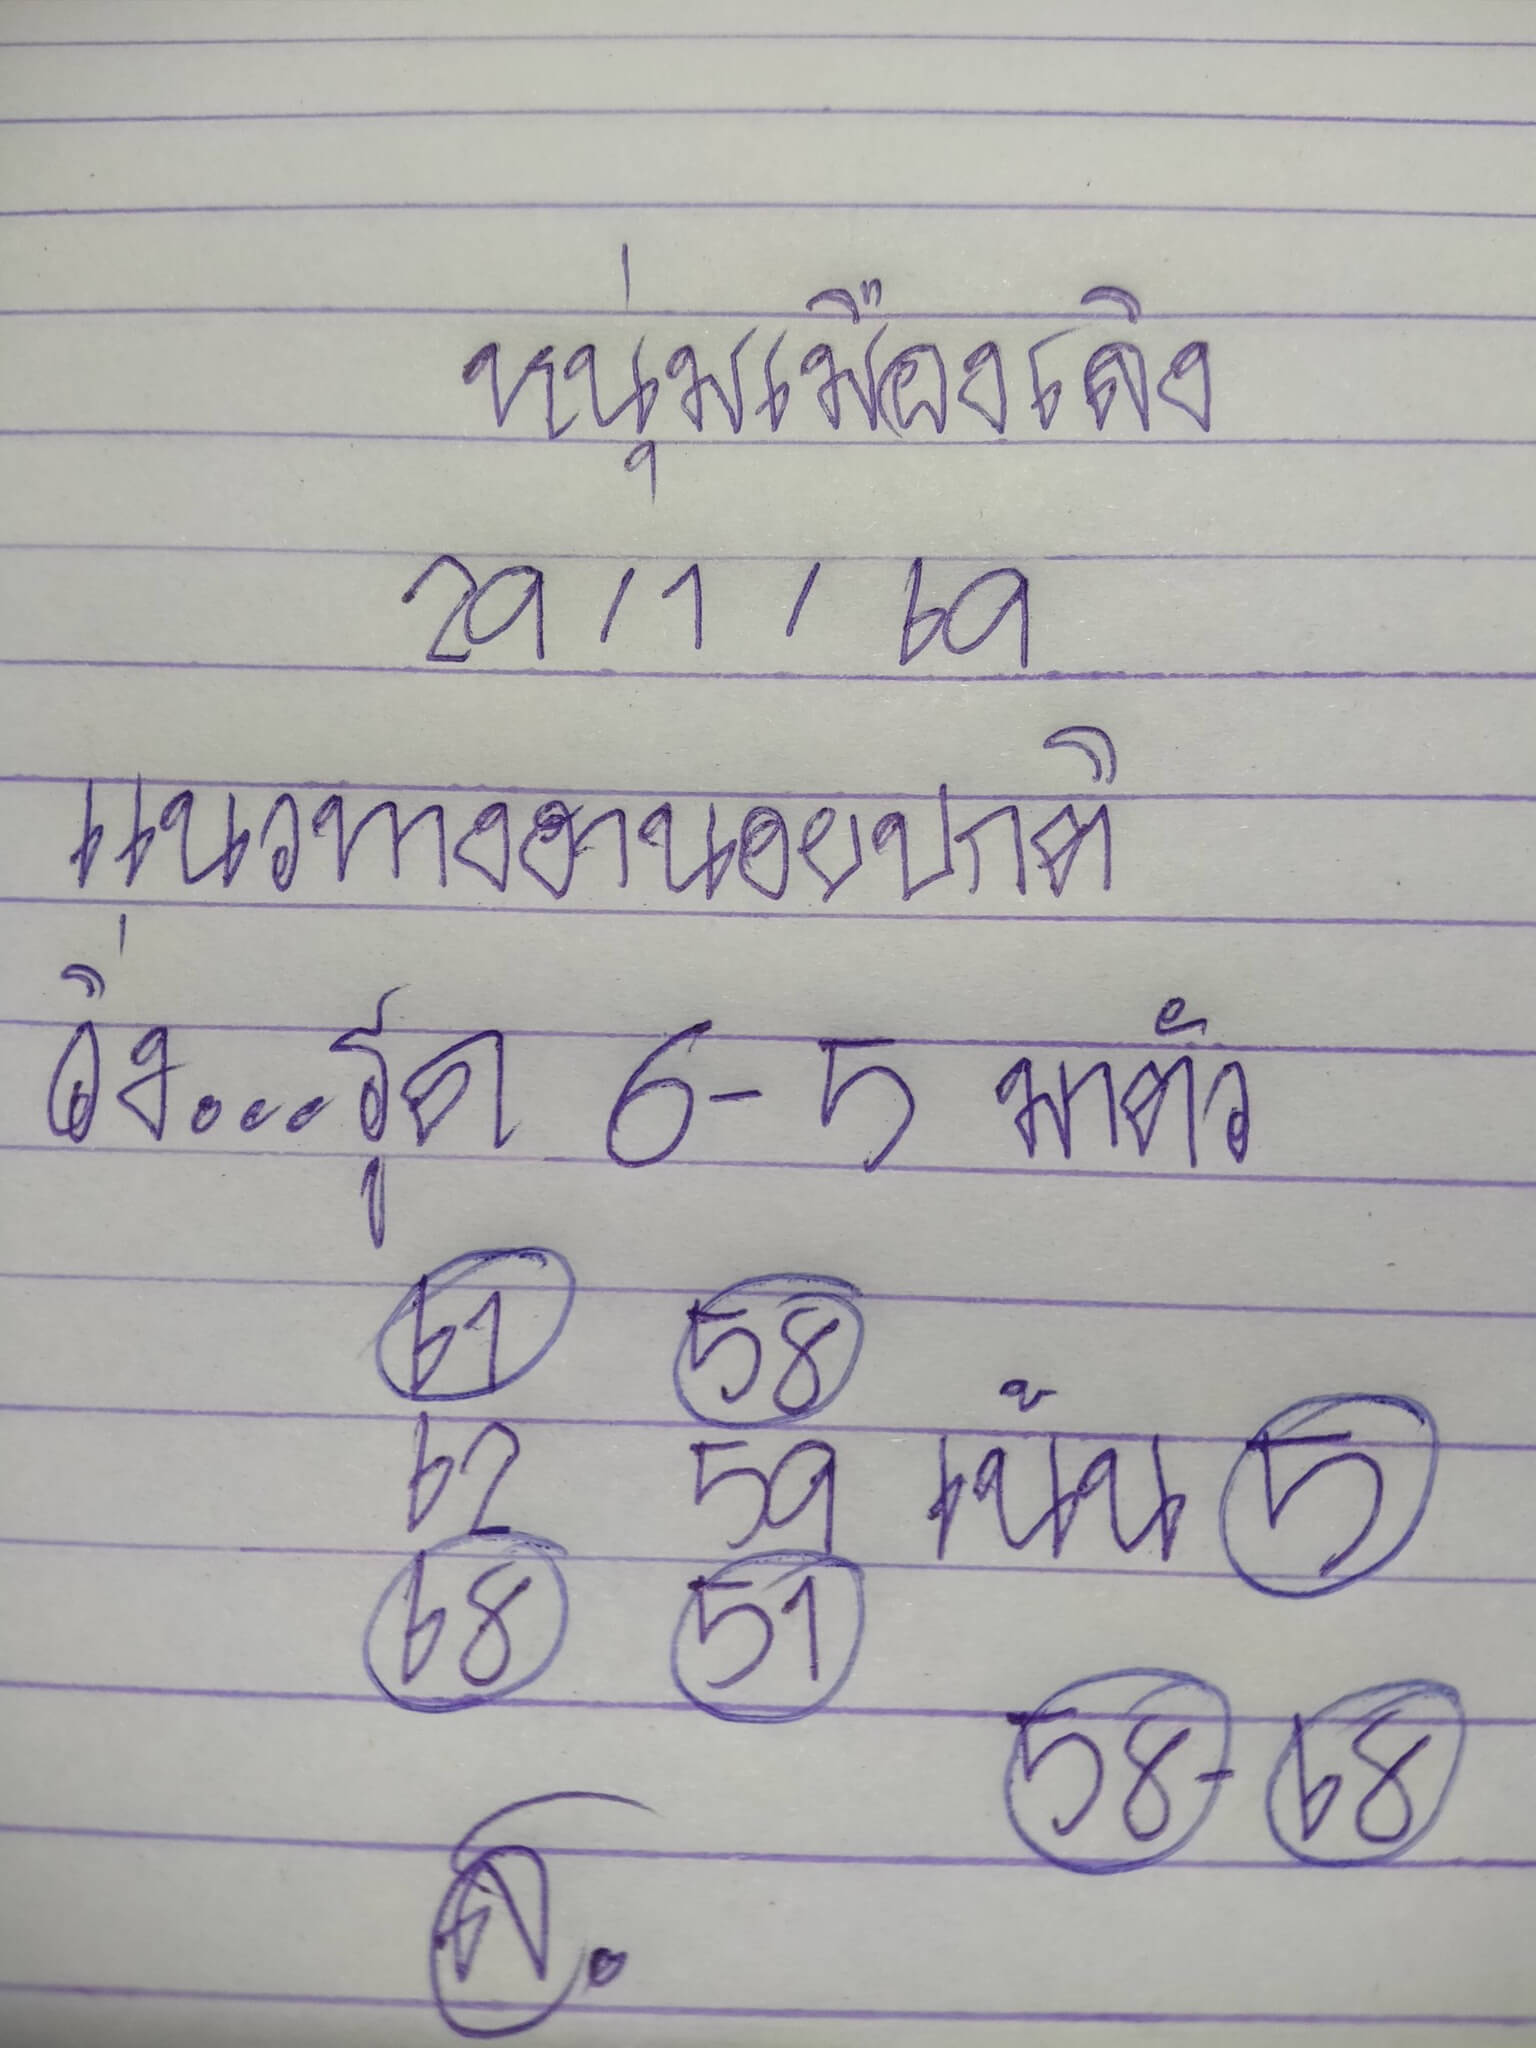 หนุ่มเมืองเลิง
29 / 1 / 69
แนวทางฮานอยปกติ
วิ่ง...รูด 6-5 มาตัว
61 58
62 59 เน้น 5
68 51
58-68